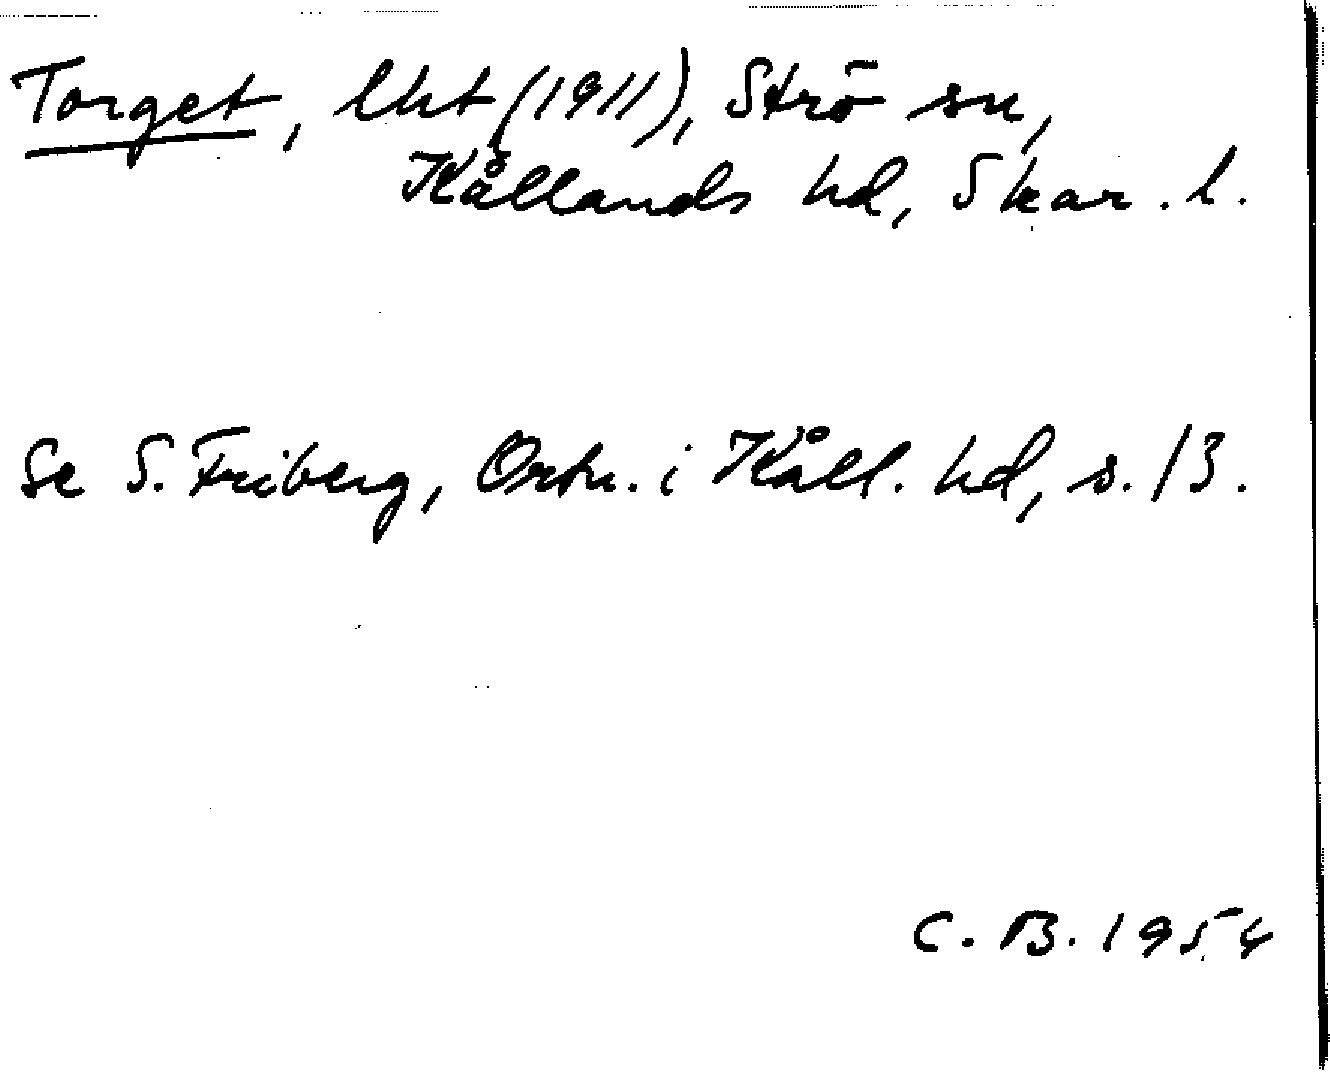 Torget, lht (1911), Strö sn,
Kållands hd, Skar. l.
Se S. Friberg, Ortn. i Kåll. hd, s. 13.
C. B. 1954